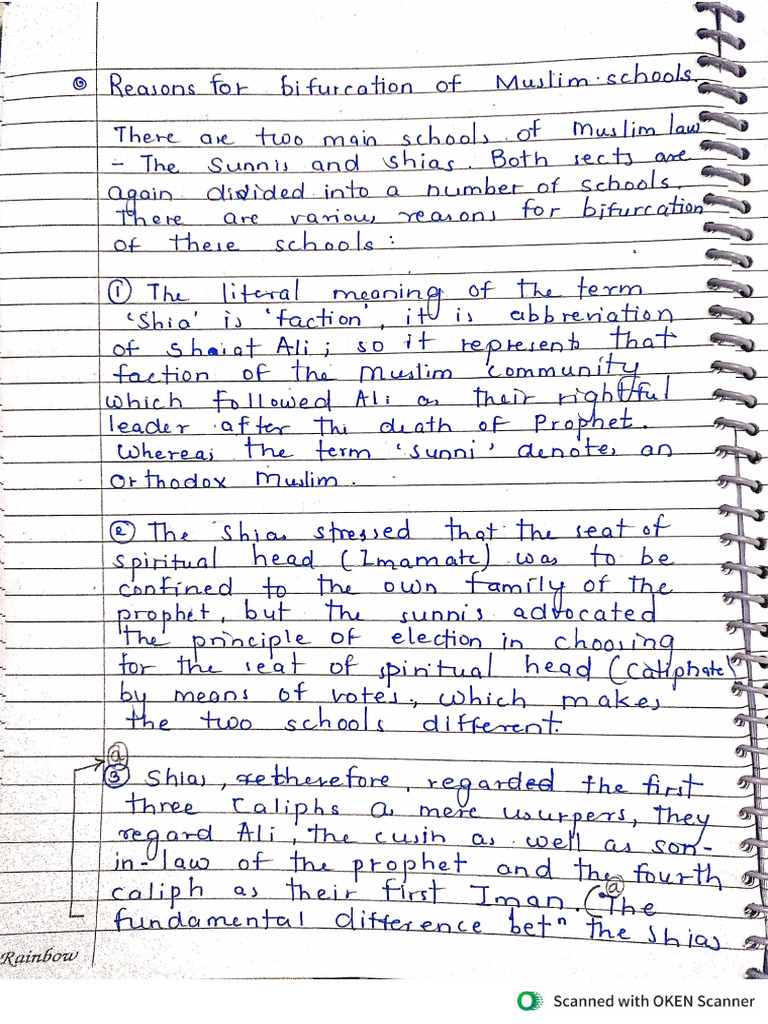 ◎ Reasons for bifurcation of Muslim schools.
There are two main schools of Muslim law
- The Sunnis and Shias. Both sects are
again divided into a number of schools.
There are various reasons for bifurcation
of these schools :
① The literal meaning of the term
'Shia' is 'faction', it is abbreviation
of Shaiat Ali ; so it represents that
faction of the Muslim community
which followed Ali as their rightful
leader after the death of Prophet.
Whereas the term 'sunni' denotes an
orthodox Muslim.
② The Shias stressed that the seat of
spiritual head (Imamate) was to be
confined to the own family of the
prophet, but the sunnis advocated
the principle of election in choosing
for the seat of spiritual head (Caliphate)
by means of votes, which makes
the two schools different.
ⓐ
③ Shias, therefore, regarded the first
three Caliphs as mere usurpers, they
regard Ali, the cusin as well as son-
in-law of the prophet and the fourth
caliph as their first Iman. (ⓐ The
fundamental difference betⁿ the Shias
Rainbow
Scanned with OKEN Scanner